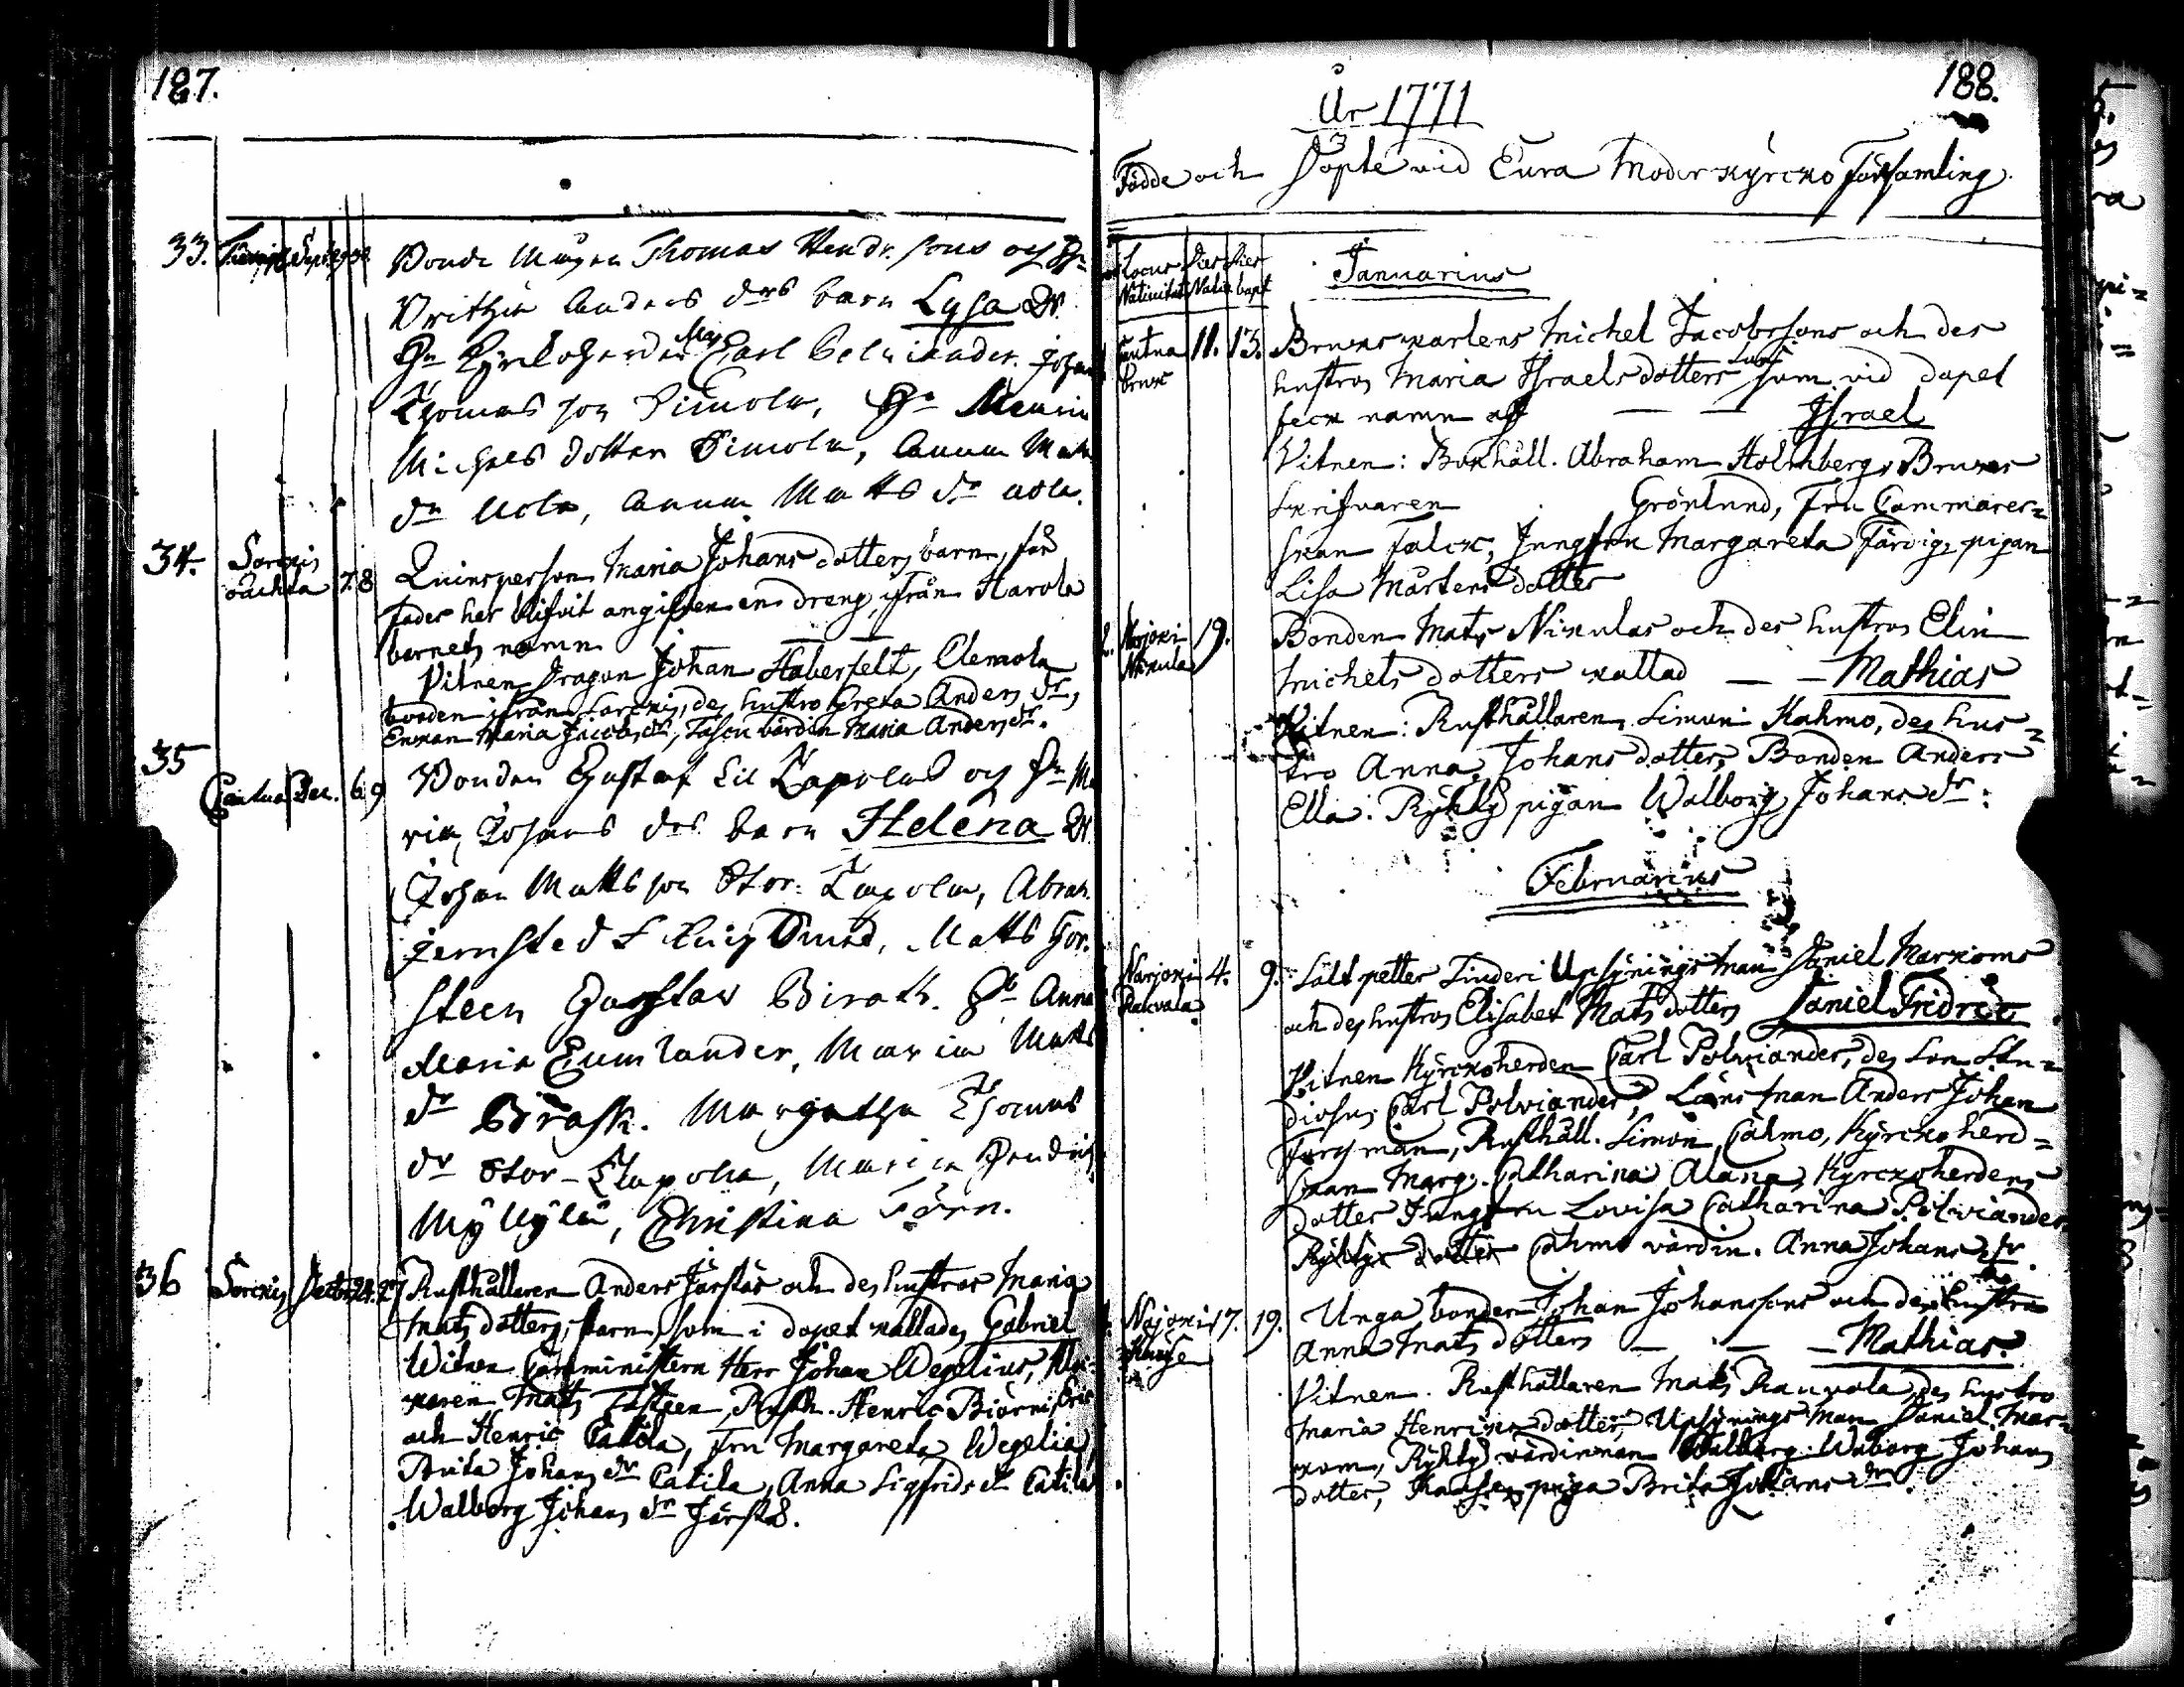 187.
33. Sept. 29 30. Bonde Mågen Thomas Hendr. sons och Hu
Brithæ Anders drs barn Lysa Dr.
Hr Kyrkoherden Mag Carl Polviander. Johan
Thomas son Simola, Hu Maria
Michels dotter Simola, Anna Matts
dr Uola, Anna Matts dr uola.
34. Sorkis 7. 8 Quinsperson Maria Johans dotters barn, får
fader har blifvit angifven en dreng ifrån Harola
barnets namn
Vitnen Dragon Johan Haberfelt, Clemola
bonden ifrån Sorkis, des hustro Greta Anders dr,
Enkan Maria Jacobs dr, värdin Maria Anders dr.
35 Cautua Dec. 6 9 Bonden Gustaf Lil Kapolas och Hu Ma
ria Johans drs barn Helena Dr.
Johan Matts son Stor-Kapola, Abrah.
Jernsted Matts For-
steen Gustav Birath. Anna
Maria Eumlander, Maria Matts
dr Brask. Margetha Thomas
dr Stor-Kapola, Maria Hendrichs
Myllylä, Christina Förn.
36 Sorkis Decbr 24. 27 Rusthållaren Anders Järstäs och des hustros Maria
Mats dotters barn som i dopet kallades Gabriel
Witnen Comministern Herr Johan Wegelius, Klo-
karen Mats Tasteen, Rusth. Henric Biörni
och Henric Catila, Fru Margareta Wegelia,
Brita Johans dr Catila, Anna Sigfrids dr Catila
Walborg Johans dr Järstäs.
188.
År 1771
Födde och Döpte vid Eura Moderkyrcko Församling.
Locus Nativitat Dies Natiu Dies bapt
Januarius
Cautua bruk 11. 13. Bruks karlens Michel Jacobssons och des
hustros Maria Israelsdotters son som vid dopet
feck namn af — — Israel
Vitnen: Bokhåll. Abraham Holmberg, Bruks
Skrifvaren Grönlund, Fru Cammarer-
skan Falck, Jungfru Margareta Färdig, pigan
Lisa Mårtens dotter
2. Naojoki Nikula 9. Bonden Mats Nikulas och des hustros Elin
Michels dotters kallad — — Mathias
Vitnen: Rusthållaren Simon Kahmo, des hus-
tro Anna Johans dotter, Bonden Anders
Ella. Rykty pigan Walborg Johans dr:
Februarius
Naojoki Rakvala 4. 9. Saltpetter Siuderi Upsynings Man Daniel Markoms
och des hustros Elisabet Mats dotters Daniel Fridric
Vitnen Kyrckoherden Carl Polviander, des Son Stu-
diosus Carl Polviander, Läns man Anders Johan
Forsman, Rusthåll. Simon Cahmo, Kyrckoherd-
skan Marg. Catharina Alana, Kyrckoherdens
dotter Jungfru Lovisa Catharina Polviander
Cahmo värdin. Anna Johans dr.
Naojoki 17. 19. Unga bonden Johan Johanssons och des hustros
Anna Mats dotters — — — Mathias.
Vitnen. Rusthållaren Mats Rauvola, des hustro
Maria Henriks dotter, Upsynings Man Daniel Mar-
kom, Rykty värdinnan Walborg Johans
dotter, piga Brita Johans dr.